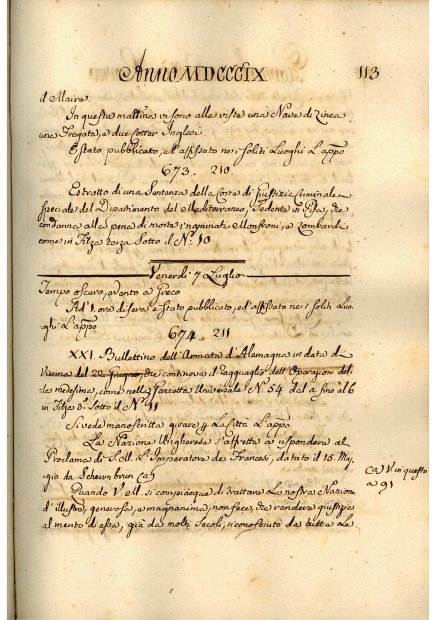 Anno MDCCCIX 113
il Maire.
In questa mattina vi sono alla vista una Nave di Linea
una Fregata, e due Cotter Inglesi
È stato pubblicato, ed affissato ne i soliti Luoghi L'appo
673. 210
Estratto di una Sentenza della Corte di Giustizia Criminale
speciale del Dipartimento del Mediterraneo, Sedente in Pisa, che
condanna alla pena di morte i nominati Monfroni, e Lombardi
come in Filza terza Sotto il N.º 10
Venerdi 7 Luglio
Tempo oscuro, e vento a Greco
Ad 1. ora di sera è stato pubblicato, ed affissato ne i soliti Luo-
ghi L'appo
674. 211
XXI. Bullettino dell'Armata d'Alemagna in data di
Vienna del 22 Giugno, che continova il ragguaglio dell'Operazioni del-
la medesima, come nella Gazzetta Universale N.º 54 dal a fino al 6
in Filza 3ª Sotto il N.º 11
Si vede manoscritta girare La Sitta L'appo
La Nazione Ungherese s'affretta a rispondere al
Proclama di S. M. L'Imperatore de Francesi, datato il 15. Mag-
gio da Scheunbrun (a)
(a) V. in questo
a 91
Quando V. M. si compiacque di trattare La nostra Nazione
d'illustre, generosa, e magnanima, non fece, che rendere giustizia
al merito di essa, già da molti Secoli, riconosciuto da tutta La